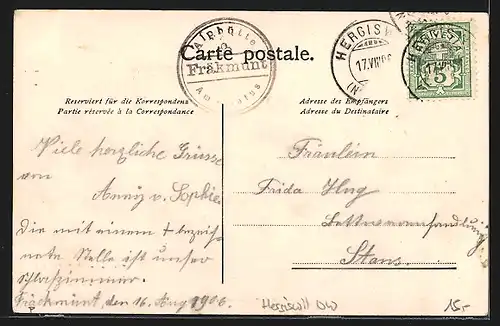 Carte postale.
Alphütte
Fräkmünt
HERGISWIL
17.VIII.06
5
Reserviert für die Korrespondenz
Partie réservée à la Correspondance
Adresse des Empfängers
Adresse du Destinataire
Viele herzliche Grüsse
von
Anny v. Sophie.
Die mit einem + bezeich
nete Stelle ist unser
Schlafzimmer.
Fräkmünt, den 16. Aug 1906.
Fräulein
Frida Hug
Stans.
Hergiswil NW
15,-